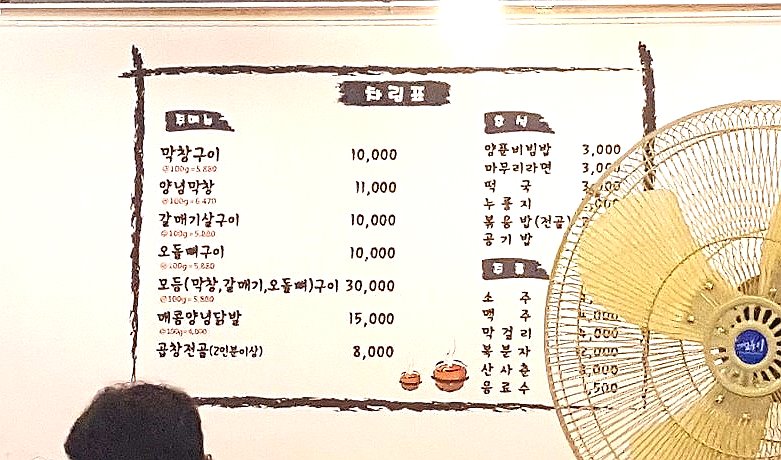 차림표
주메뉴
막창구이 10,000
@100g=5,880
양념막창 11,000
@100g=6,470
갈매기살구이 10,000
@100g=5,880
오돌뼈구이 10,000
@100g=5,880
모듬(막창,갈매기,오돌뼈)구이 30,000
@100g=5,880
매콤양념닭발 15,000
곱창전골(2인분이상) 8,000
양푼비빔밥 3,000
마무리라면 3,000
떡국
누룽지
볶음밥(전골)
공기밥
소주
맥주
막걸리
복분자
산사춘
음료수